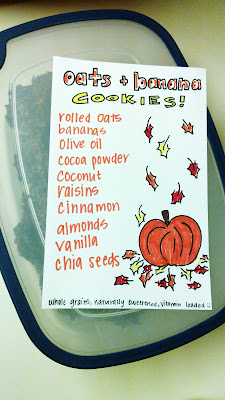 oats + banana
COOKIES!
rolled oats
bananas
olive oil
cocoa powder
coconut
raisins
cinnamon
almonds
vanilla
chia seeds
whole grains, naturally sweetened, vitamin loaded :)